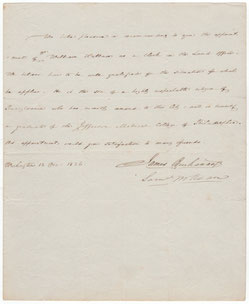 We take pleasure in recommending to your favorable
Wm William Watkins as a clerk in the Land office.
We know him to be well qualified for the situation for which
he applies. He is the son of a highly respectable citizen of
Pennsylvania who has recently removed to this City, and is recently
a graduate of the Jefferson Medical College of Philadelphia.
His appointment would give satisfaction to many friends
Washington 12 Dec. 1836
James Buchanan
Saml McKean